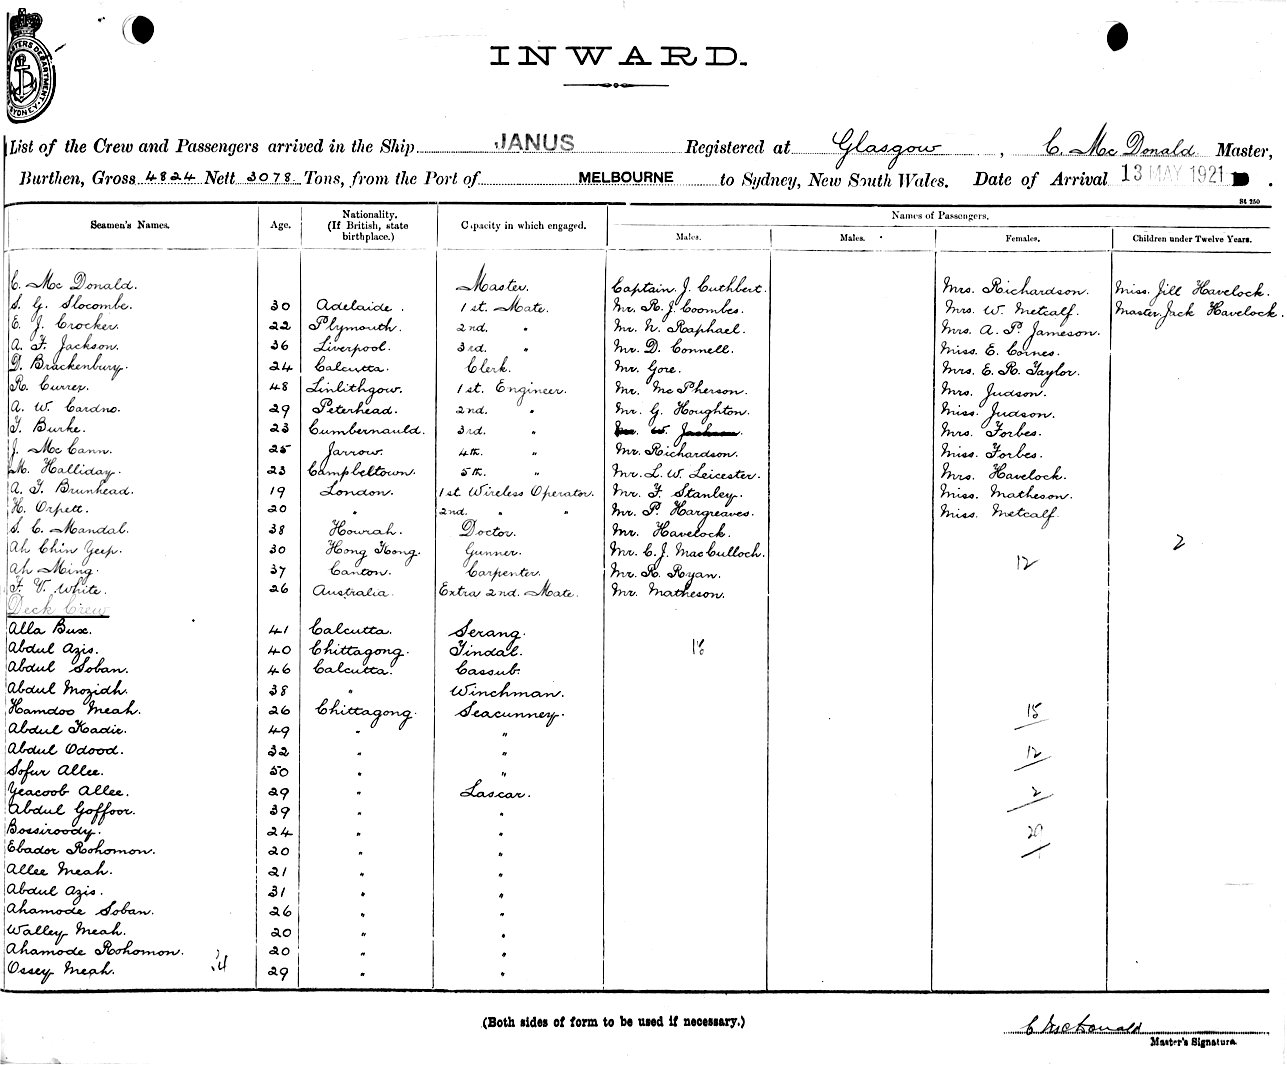 CUSTOMS DEPARTMENT SYDNEY
INWARD.
List of the Crew and Passengers arrived in the Ship JANUS Registered at Glasgow, C. McDonald Master,
Burthen, Gross 4824 Nett 3078 Tons, from the Port of MELBOURNE to Sydney, New South Wales. Date of Arrival 13 MAY 1921.
St 250
Seamen's Names. Age. Nationality. (If British, state birthplace.) Capacity in which engaged. Names of Passengers.
Males. Males. Females. Children under Twelve Years.
C. McDonald. Master. Captain J. Cuthbert. Mrs. Richardson. Miss. Jill Havelock.
S. G. Slocombe. 30 Adelaide. 1st. Mate. Mr. R. J. Coombes. Mrs. W. Metcalf. Master Jack Havelock.
E. J. Crocker. 22 Plymouth. 2nd. " Mr. N. Raphael. Mrs. A. P. Jameson.
A. F. Jackson. 36 Liverpool. 3rd. " Mr. D. Connell. Miss. E. Cornes.
D. Brackenbury. 24 Calcutta. Clerk. Mr. Gore. Mrs. E. R. Taylor.
R. Currer. 48 Linlithgow. 1st. Engineer. Mr. McPherson. Mrs. Judson.
A. W. Cardno. 29 Peterhead. 2nd. " Mr. G. Houghton. Miss. Judson.
T. Burke. 23 Cumbernauld. 3rd. " Mr. W. Jackson. Mrs. Forbes.
J. McCann. 25 Jarrow. 4th. " Mr. Richardson. Miss. Forbes.
M. Halliday. 23 Campbeltown. 5th. " Mr. L. W. Leicester. Mrs. Havelock.
A. T. Brunhead. 19 London. 1st. Wireless Operator. Mr. F. Stanley. Miss. Matheson.
H. Orpett. 20 " 2nd. " " Mr. P. Hargreaves. Miss. Metcalf.
S. C. Mandal. 38 Howrah. Doctor. Mr. Havelock. 2
Ah Chin Yeep. 30 Hong Kong. Gunner. Mr. C. J. MacCulloch. 12
Ah Ming. 37 Canton. Carpenter. Mr. R. Ryan.
F. V. White. 26 Australia. Extra 2nd. Mate. Mr. Matheson.
Deck Crew
Alla Bux. 41 Calcutta. Serang.
Abdul Azis. 40 Chittagong. Tindal.
Abdul Soban. 46 Calcutta. Cassub.
Abdul Mozidh. 38 " Winchman.
Hamdoo Meah. 26 Chittagong. Seacunney. 15
Abdul Kadir. 49 " "
Abdul Odood. 32 " " 12
Sofur Allee. 50 " "
Yeacoob Allee. 29 " Lascar. 2
Abdul Goffoor. 39 " "
Bossiroody. 24 " " 29
Ebador Rohomon. 20 " "
Allee Meah. 21 " "
Abdul Azis. 31 " "
Ahamode Soban. 26 " "
Walley Meah. 20 " "
Ahamode Rohomon. 20 " "
Ossey Meah. 29 " "
(Both sides of form to be used if necessary.) C McDonald
Master's Signature.